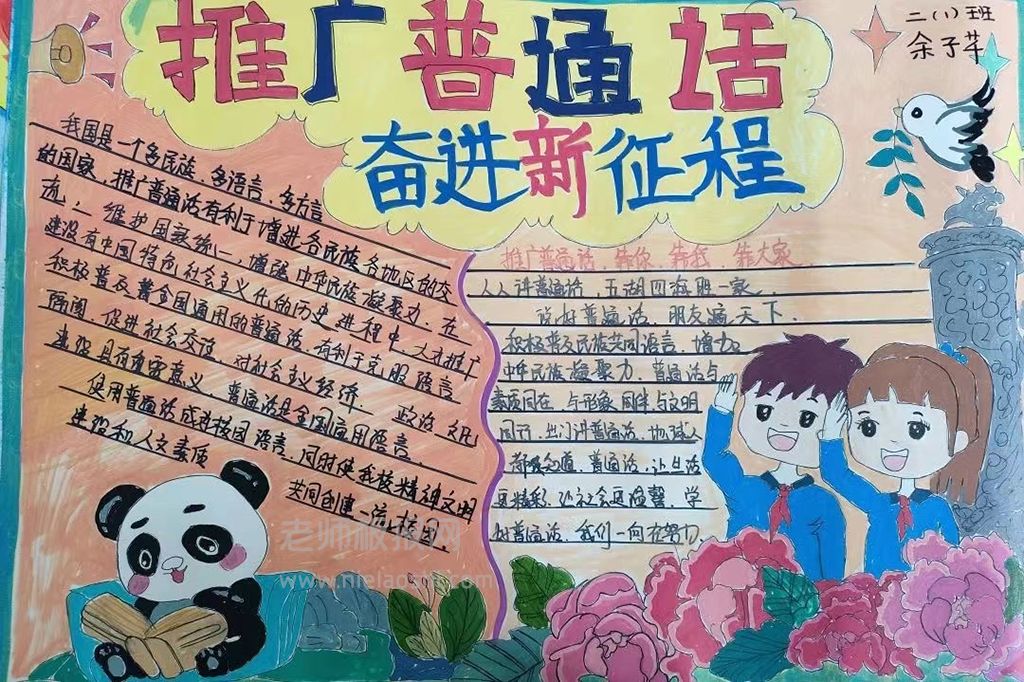 推广普通话
奋进新征程
二(1)班
余子芊
我国是一个多民族、多语言、多方言
的国家，推广普通话有利于增进各民族各地区的交
流，维护国家统一，增强中华民族凝聚力，在
建设有中国特色社会主义化的历史进程中，大力推广
积极普及着全国通用的普通话，有利于克服语言
隔阂，促进社会交流，对社会主义经济 政治 文化
建设具有重要意义，普通话是全国应用语言，
使用普通话成进校园语言，同时使我校精神文明
建设和人文素质
共同创建一流校园。
推广普通话，靠你 靠我 靠大家
人人讲普通话，五湖四海胜一家，
说好普通话，朋友遍天下。
积极普及民族共同语言，增力
中华民族凝聚力，普通话与
素质同在，与形象同伴，与文明
同行，出门讲普通话，地球人
都知道，普通话，让生活
更精彩，让社会更温馨，学
好普通话，我们一向在努力
老师板报网